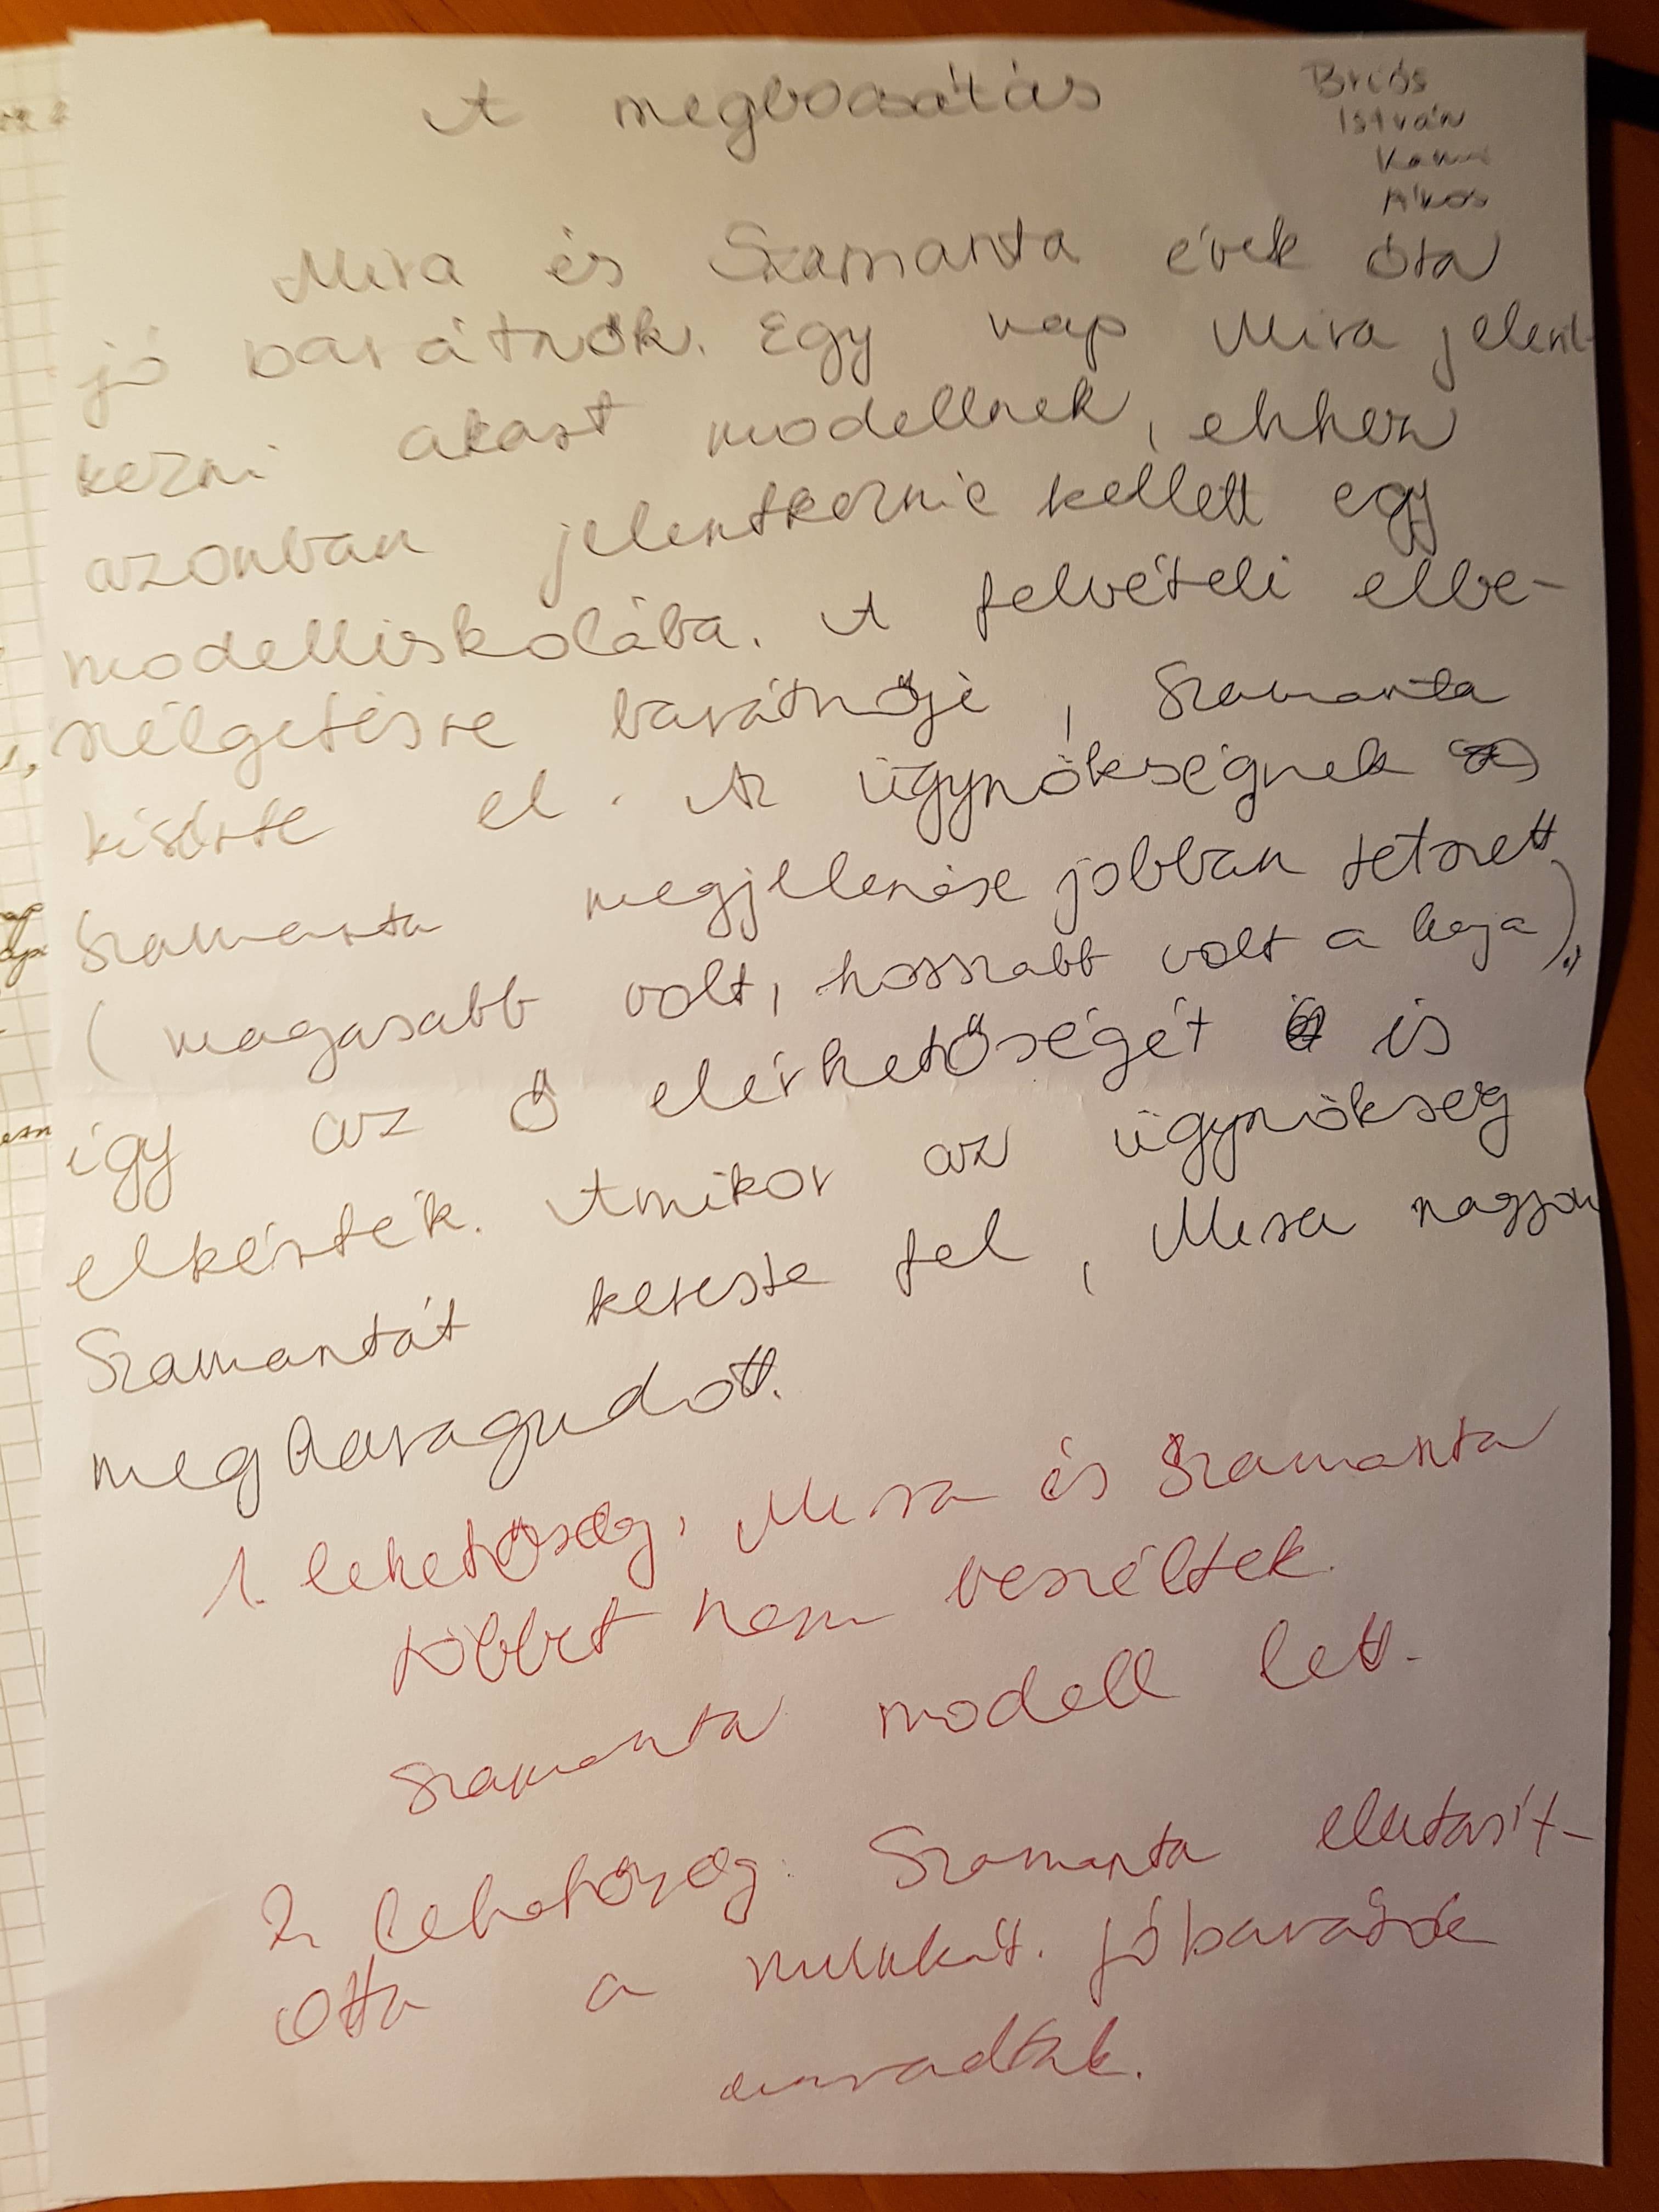 A megbocsátás
Briós
István
Kami
Ákos
Mira és Szamanta évek óta
jó barátnők. Egy nap Mira jelent-
kezni akart modellnek, ehhez
azonban jelentkeznie kellett egy
modelliskolába. A felvételi elbe-
szélgetésre barátnője, Szamanta
kísérte el. Az ügynökségnek
Szamanta megjelenése jobban tetszett
(magasabb volt, hosszabb volt a haja),
így az ő elérhetőségét is
elkérték. Amikor az ügynökség
Szamantát kereste fel, Mira nagyon
megharagudott.
1. lehetőség, Mira és Szamanta
többet nem beszéltek.
Szamanta modell lett.
2. lehetőség: Szamanta elutasít-
otta a munkát. Jóbarátnők
maradtak.